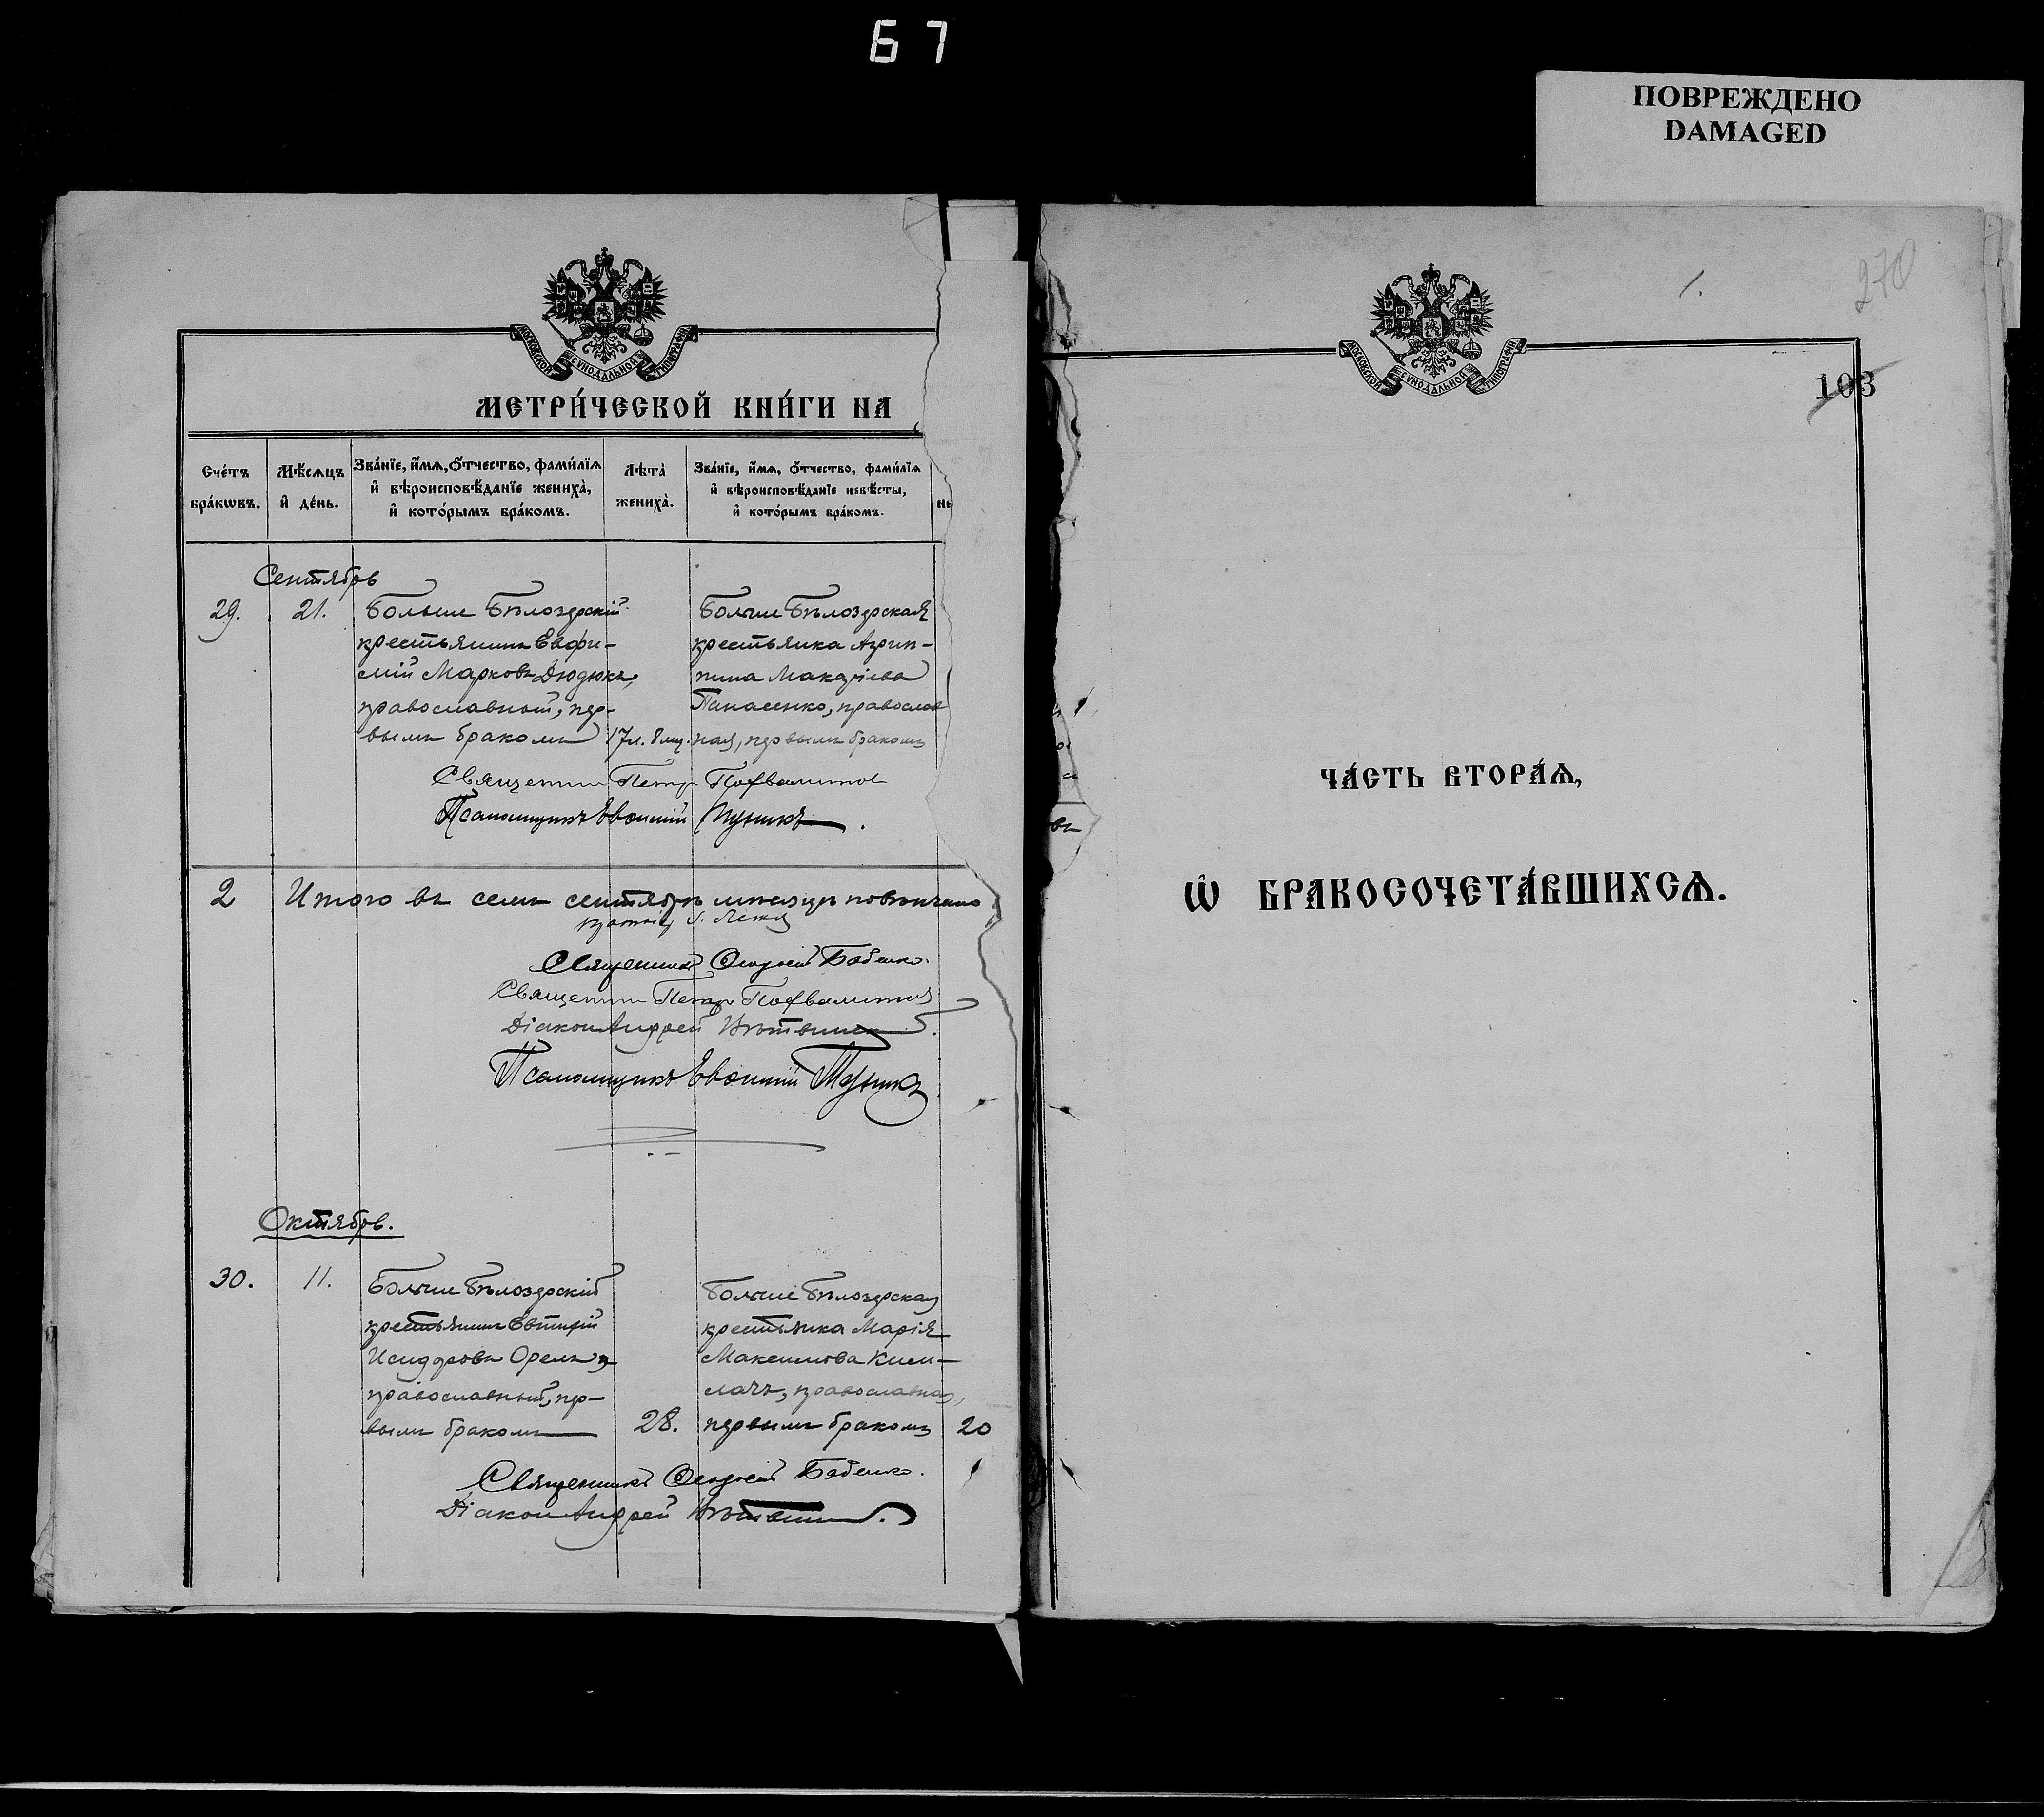 67
ПОВРЕЖДЕНО
DAMAGED
МОСКОВСКОЙ СѴНОДАЛЬНОЙ ТИПОГРАФІИ
МЕТРИ́ЧЕСКОЙ КНИ́ГИ НА
Сче́тъ бра́кѡвъ.
Мѣ́сѧцъ и҆ де́нь.
Зва́нїе, и҆́мѧ, ѻ҆́тчество, фами́лїѧ и҆ вѣроисповѣ́данїе жениха̀, и҆ кото́рымъ бра́комъ.
Лѣта̀ жениха̀.
Зва́нїе, и҆́мѧ, ѻ҆́тчество, фами́лїѧ и҆ вѣроисповѣ́данїе невѣ́сты, и҆ кото́рымъ бра́комъ.
Сентябрь
29. 21.
Больше Бѣлозерскій
крестьянинъ Евфи-
мій Марковъ Дюдюкъ,
православный, пер-
вымъ бракомъ
17 л. 8 мц.
Больше Бѣлозерская
крестьянка Агрип-
пина Макаріева
Панасенко, православ
ная, первымъ бракомъ
Священникъ Петръ
Псаломщикъ Евѳимій
2 Итого въ семъ сентябрѣ мѣсяцѣ повѣнчано
Священникъ Ѳеодосій Бабенко.
Священникъ Петръ
Діаконъ Андрей
Псаломщикъ Евѳимій
Октябрь.
30. 11.
Больше Бѣлозерскій
крестьянинъ Евтихій
Исидоровъ Орелъ,
православный, пер-
вымъ бракомъ
28.
Больше Бѣлозерская
крестьянка Марія
Максимова Ким-
лачъ, православная,
первымъ бракомъ
20
Священникъ Ѳеодосій Бабенко.
Діаконъ Андрей
1.
270
МОСКОВСКОЙ СѴНОДАЛЬНОЙ ТИПОГРАФІИ
103
ЧА́СТЬ ВТОРА́Ѧ,
Ѡ҆ БРАКОСОЧЕТА́ВШИХСѦ.